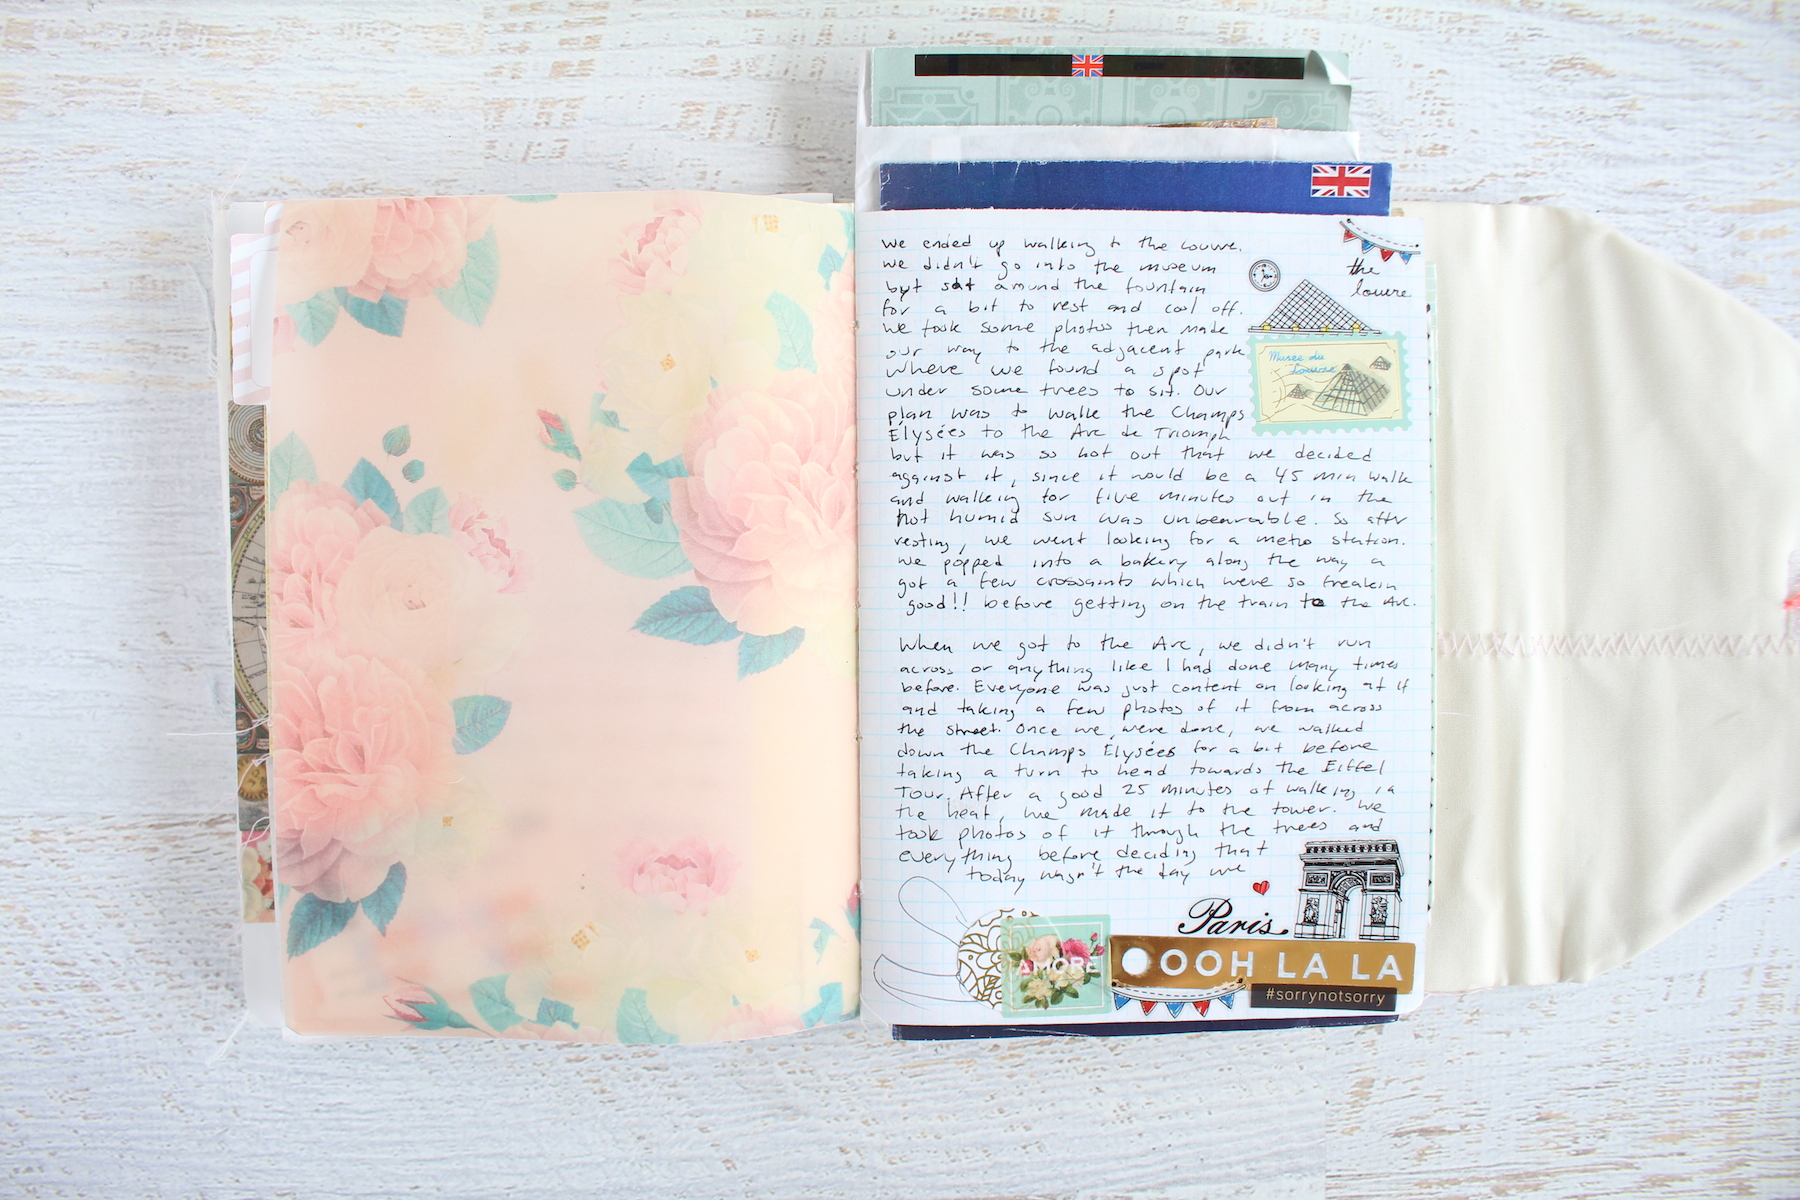 we ended up walking to the Louvre.
we didn't go into the museum
but sat around the fountain
for a bit to rest and cool off.
we took some photos then made
our way to the adjacent park
where we found a spot
under some trees to sit. Our
plan was to walk the Champs
Elysées to the Arc de Triomph
but it was so hot out that we decided
against it, since it would be a 45 min walk
and walking for five minutes out in the
hot humid sun was unbearable. So aftr
resting, we went looking for a metro station.
we popped into a bakery along the way a
got a few crossaints which were so freakin
good!! before getting on the train to the Arc.
When we got to the Arc, we didn't run
across or anything like I had done many times
before. Everyone was just content on looking at it
and taking a few photos of it from across
the street. Once we were done, we walked
down the Champs Elysées for a bit before
taking a turn to head towards the Eiffel
Tour. After a good 25 minutes of walking in
the heat, we made it to the tower. We
took photos of it through the trees and
everything before deciding that
today wasn't the day we
the
louvre
Musee du
Louvre
Paris.
AMORE
OOH LA LA
#sorrynotsorry